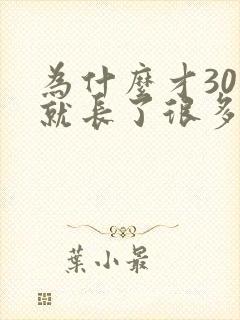 為什麼才30
就長了很多
葉小最